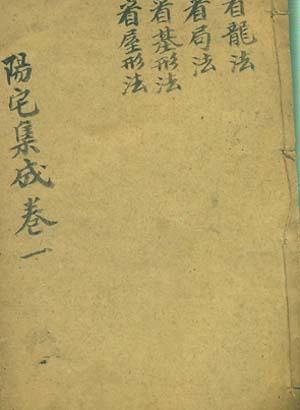 看龍法
看局法
看基形法
看屋形法
陽宅集成卷一